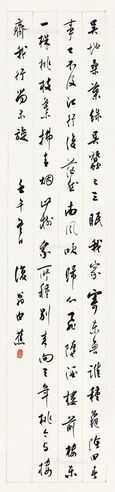 吴地桑叶绿吴蚕已三眠我家寄东鲁谁种龟阴田春
事已不及江行复茫然南风吹归心飞堕酒楼前楼东
一株桃枝叶拂青烟此树我所种别来向三年桃今与楼
齐我行尚未旋 壬午春日 复翁白蕉